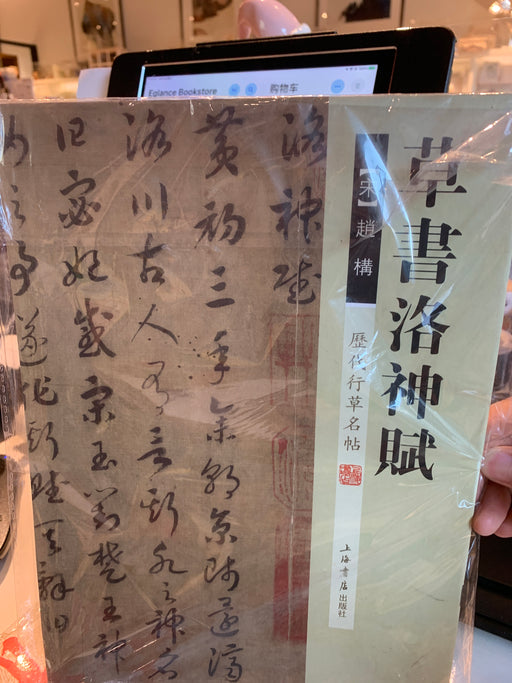 Eglance Bookstore
购物车
草書洛神賦
【宋】趙構
歷代行草名帖
上海書店出版社
洛神賦
黃初三年余朝京師還濟
洛川古人有言斯水之神名
曰宓妃感宋玉對楚王神
女之事遂作斯賦其辭曰